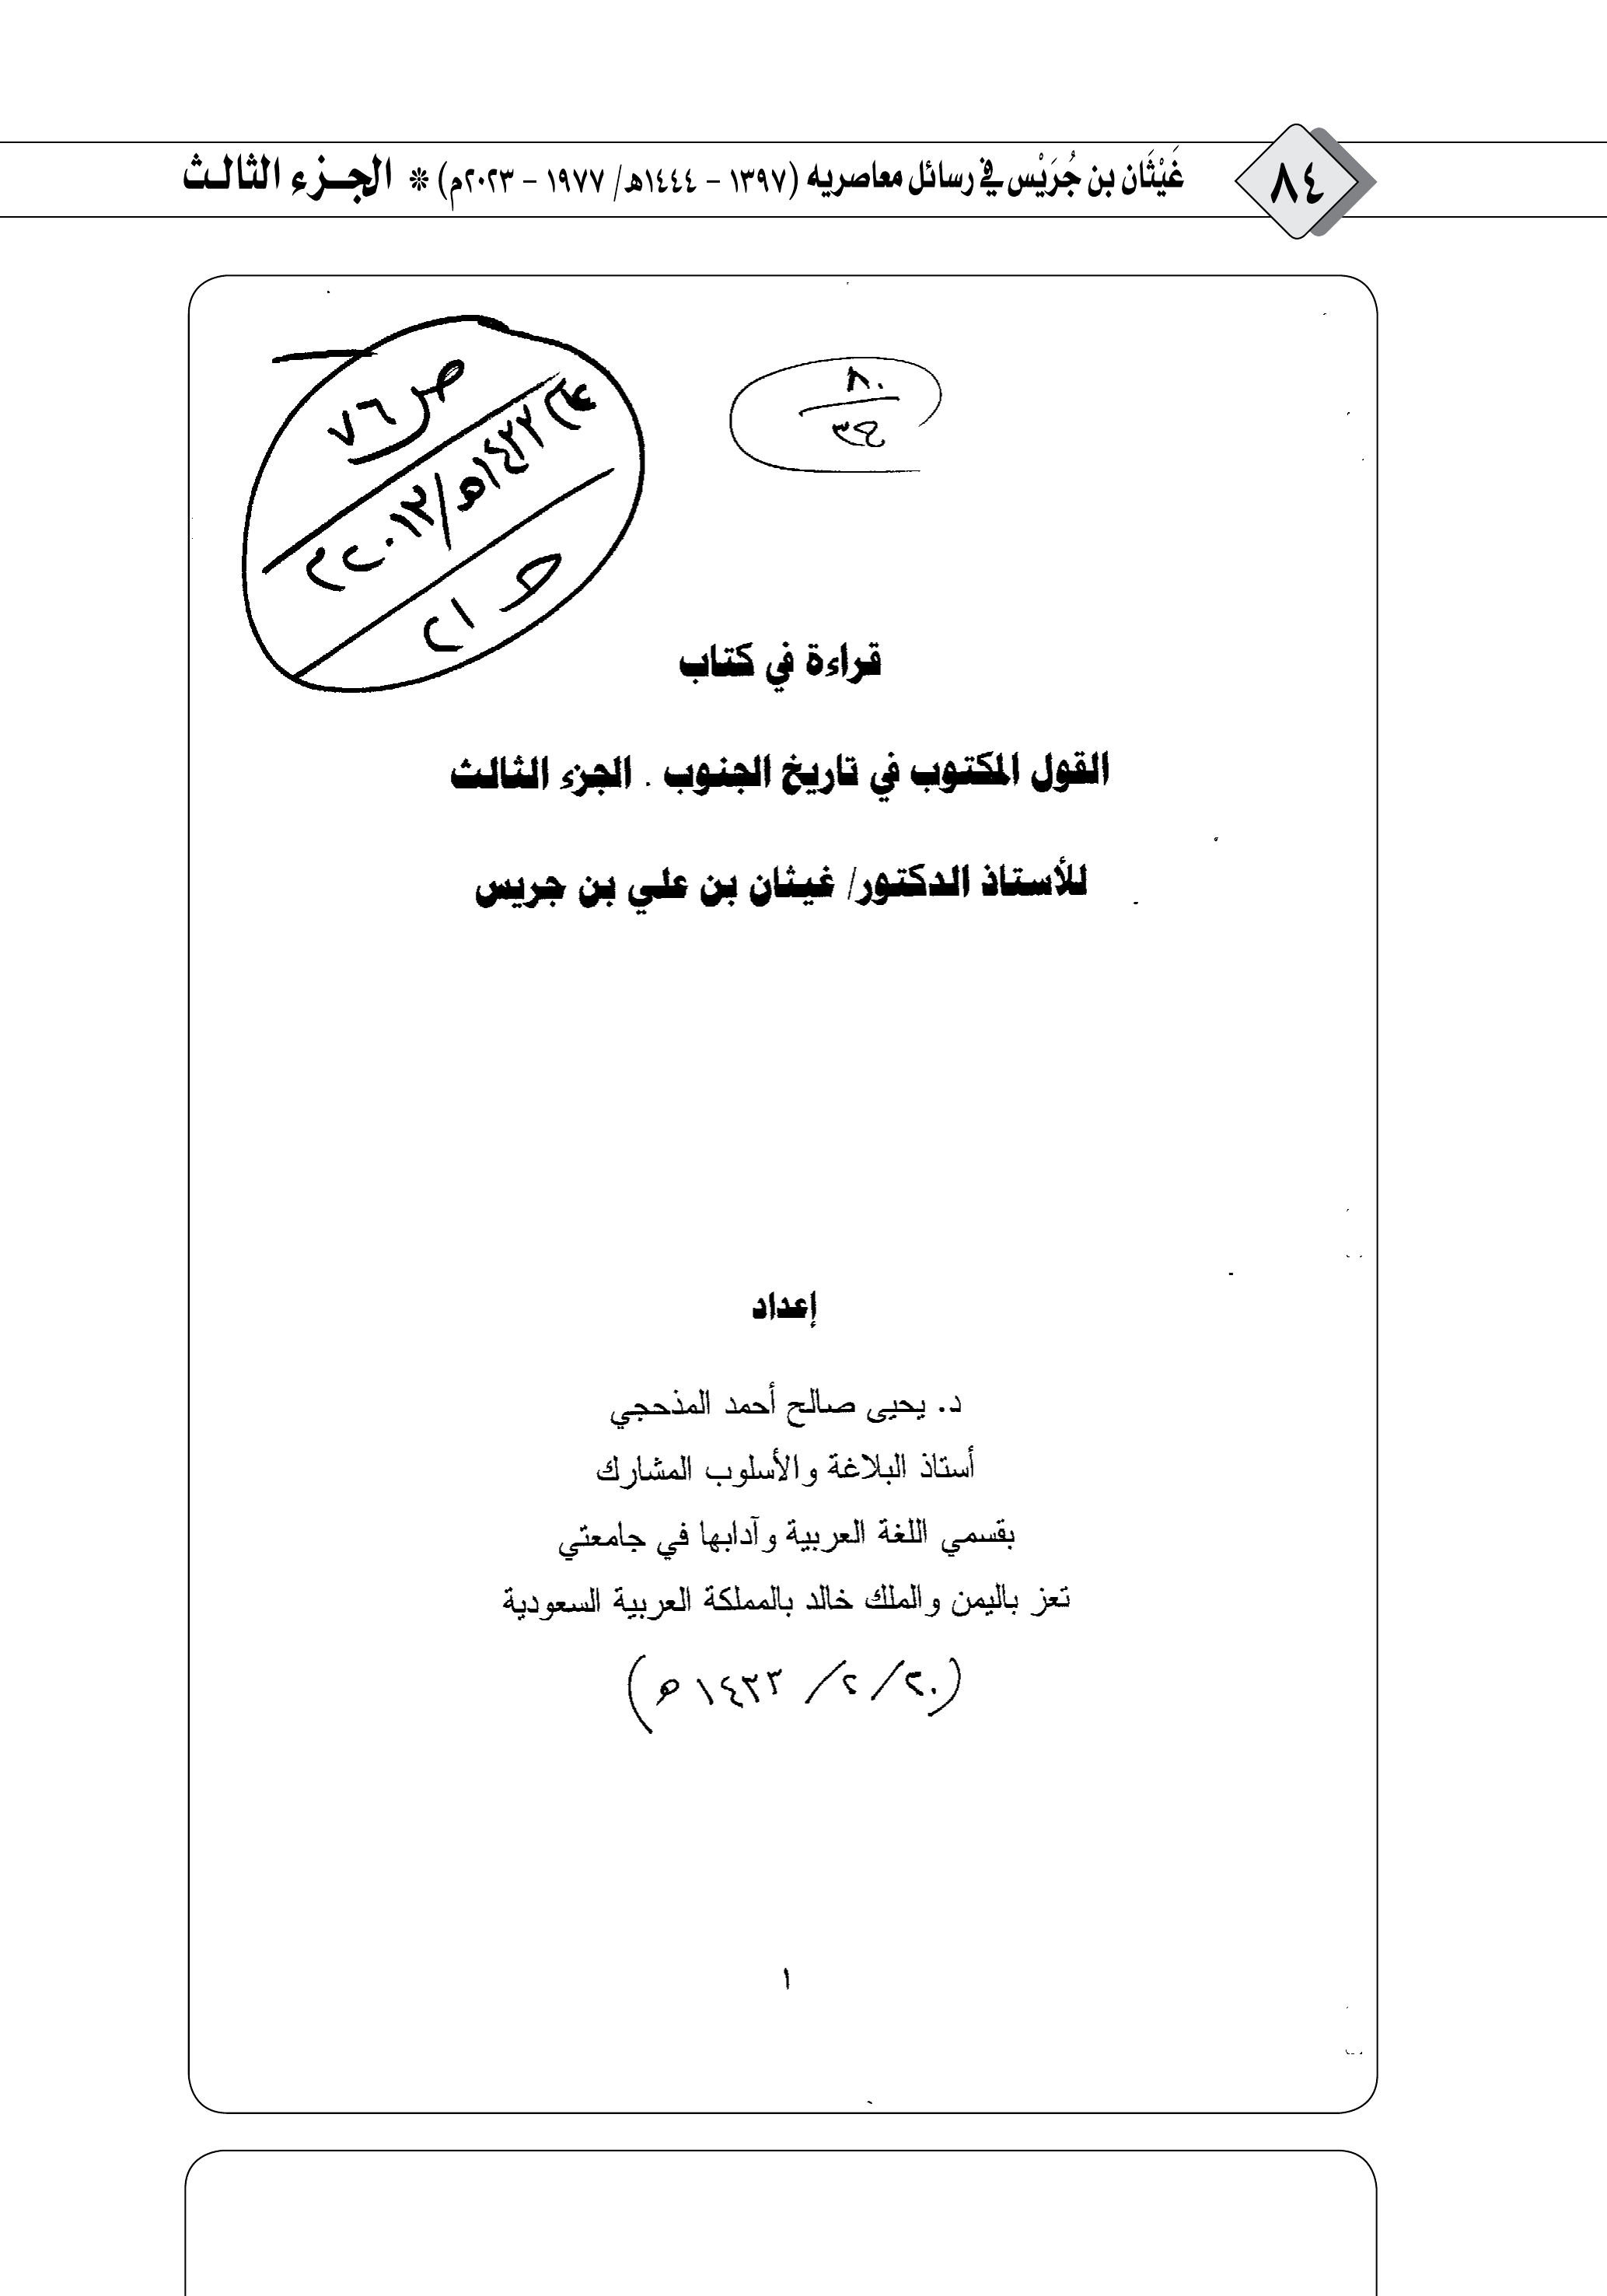 غَيْثَان بن جُرَيْس في رسائل معاصريه (١٣٩٧ - ١٤٤٤هـ/ ١٩٧٧ - ٢٠٢٣م) * الجـزء الثالـث
٨٤
ص ٧٦
١٤٢٢هـ/٢٠١٢م
٢١
٨٠
قراءة في كتاب
القول المكتوب في تاريخ الجنوب . الجزء الثالث
للأستاذ الدكتور/ غيثان بن علي بن جريس
إعداد
د. يحيى صالح أحمد المذحجي
أستاذ البلاغة والأسلوب المشارك
بقسمي اللغة العربية وآدابها في جامعتي
تعز باليمن والملك خالد بالمملكة العربية السعودية
(٢٠/ ٢/ ١٤٣٣هـ)
١